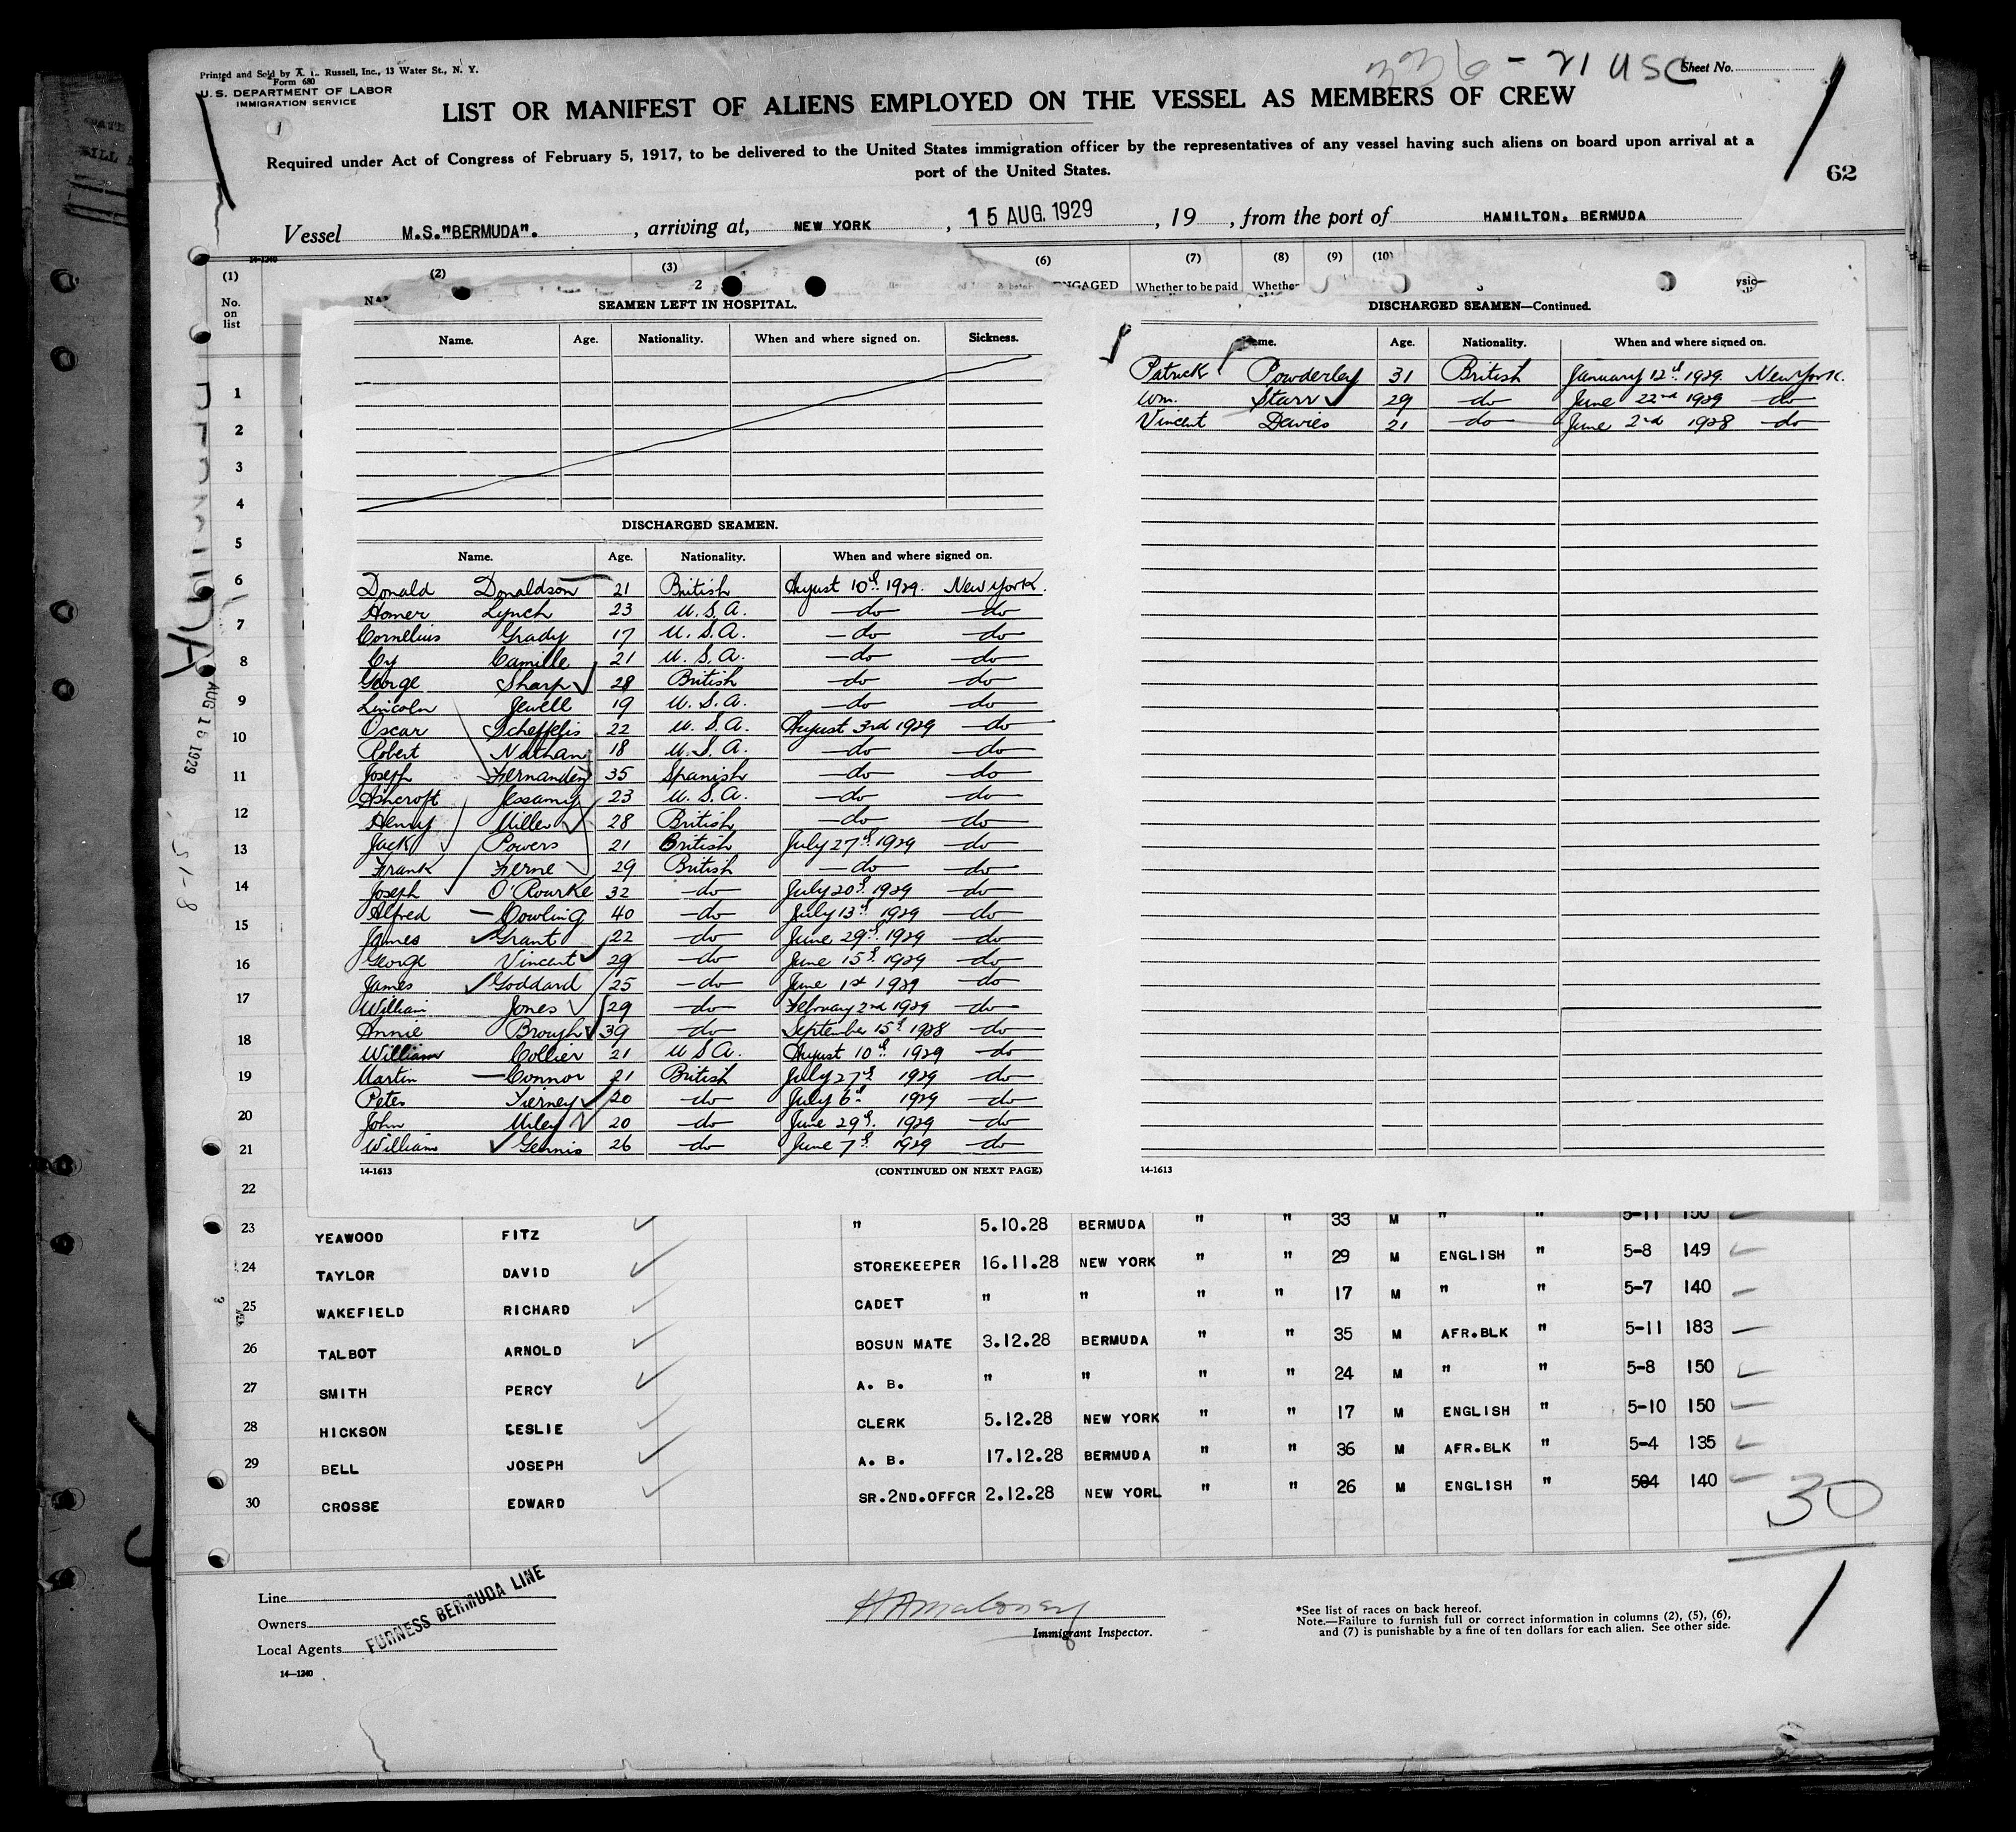 Printed and Sold by A. L. Russell, Inc., 13 Water St., N. Y.
Form 680
U. S. DEPARTMENT OF LABOR
IMMIGRATION SERVICE
336 - 21 USC
Sheet No.
LIST OR MANIFEST OF ALIENS EMPLOYED ON THE VESSEL AS MEMBERS OF CREW
Required under Act of Congress of February 5, 1917, to be delivered to the United States immigration officer by the representatives of any vessel having such aliens on board upon arrival at a
port of the United States.
62
Vessel M.S."BERMUDA". , arriving at, NEW YORK , 15 AUG. 1929 , 19 , from the port of HAMILTON, BERMUDA
14-1240
(1) (2) (3) (6) (7) (8) (9) (10)
No. on list
2 ENGAGED Whether to be paid
SEAMEN LEFT IN HOSPITAL.
Name. Age. Nationality. When and where signed on. Sickness.
DISCHARGED SEAMEN.
Name. Age. Nationality. When and where signed on.
Donald Donaldson 21 British August 10th 1929. New York.
Homer Lynch 23 U.S.A. —do— —do—
Cornelius Grady 17 U.S.A. —do— —do—
Cy Camille 21 U.S.A. —do— —do—
George Sharp 28 British —do— —do—
Lincoln Jewell 19 U.S.A. —do— —do—
Oscar Scheffelis 22 U.S.A. August 3rd 1929 —do—
Robert Nathan 18 U.S.A. —do— —do—
Joseph Fernandez 35 Spanish —do— —do—
Ashcroft Jessamy 23 U.S.A. —do— —do—
Henry Miller 28 British —do— —do—
Jack Powers 21 British July 27th 1929 —do—
Frank Ferne 29 British —do— —do—
Joseph O'Rourke 32 —do— July 20th 1929 —do—
Alfred Cowling 40 —do— July 13th 1929 —do—
James Grant 22 —do— June 29th 1929 —do—
George Vincent 29 —do— June 15th 1929 —do—
James Goddard 25 —do— June 1st 1929 —do—
William Jones 29 —do— February 2nd 1929 —do—
Annie Brough 39 —do— September 15th 1928 —do—
William Collier 21 U S A. August 10th 1929 —do—
Martin Connor 21 British July 27th 1929 —do—
Peter Tierney 20 —do— July 6th 1929 —do—
John Miley 20 —do— June 29th. 1929 —do—
William Gennis 26 —do— June 7th 1929 —do—
14-1613 (CONTINUED ON NEXT PAGE)
DISCHARGED SEAMEN—Continued.
Age. Nationality. When and where signed on.
Patrick Powderley 31 British January 12th 1929. New York.
Wm. Starr 29 —do— June 22nd 1929 —do—
Vincent Davies 21 —do— June 2nd 1928 —do—
14-1613
1
2
3
4
5
6
7
8
9
10
11
12
13
14
15
16
17
18
19
20
21
22
AUG 16 1929
23 YEAWOOD FITZ " 5.10.28 BERMUDA " " 33 M " " 5-11 150
24 TAYLOR DAVID STOREKEEPER 16.11.28 NEW YORK " " 29 M ENGLISH " 5-8 149
25 WAKEFIELD RICHARD CADET " " " " 17 M " " 5-7 140
26 TALBOT ARNOLD BOSUN MATE 3.12.28 BERMUDA " " 35 M AFR.BLK " 5-11 183
27 SMITH PERCY A. B. " " " " 24 M " " 5-8 150
28 HICKSON LESLIE CLERK 5.12.28 NEW YORK " " 17 M ENGLISH " 5-10 150
29 BELL JOSEPH A. B. 17.12.28 BERMUDA " " 36 M AFR.BLK " 5-4 135
30 CROSSE EDWARD SR.2ND.OFFCR 2.12.28 NEW YORL " " 26 M ENGLISH " 504 140
30
Line
Owners
Local Agents
FURNESS BERMUDA LINE
14—1240
Immigrant Inspector.
*See list of races on back hereof.
Note.—Failure to furnish full or correct information in columns (2), (5), (6),
and (7) is punishable by a fine of ten dollars for each alien. See other side.